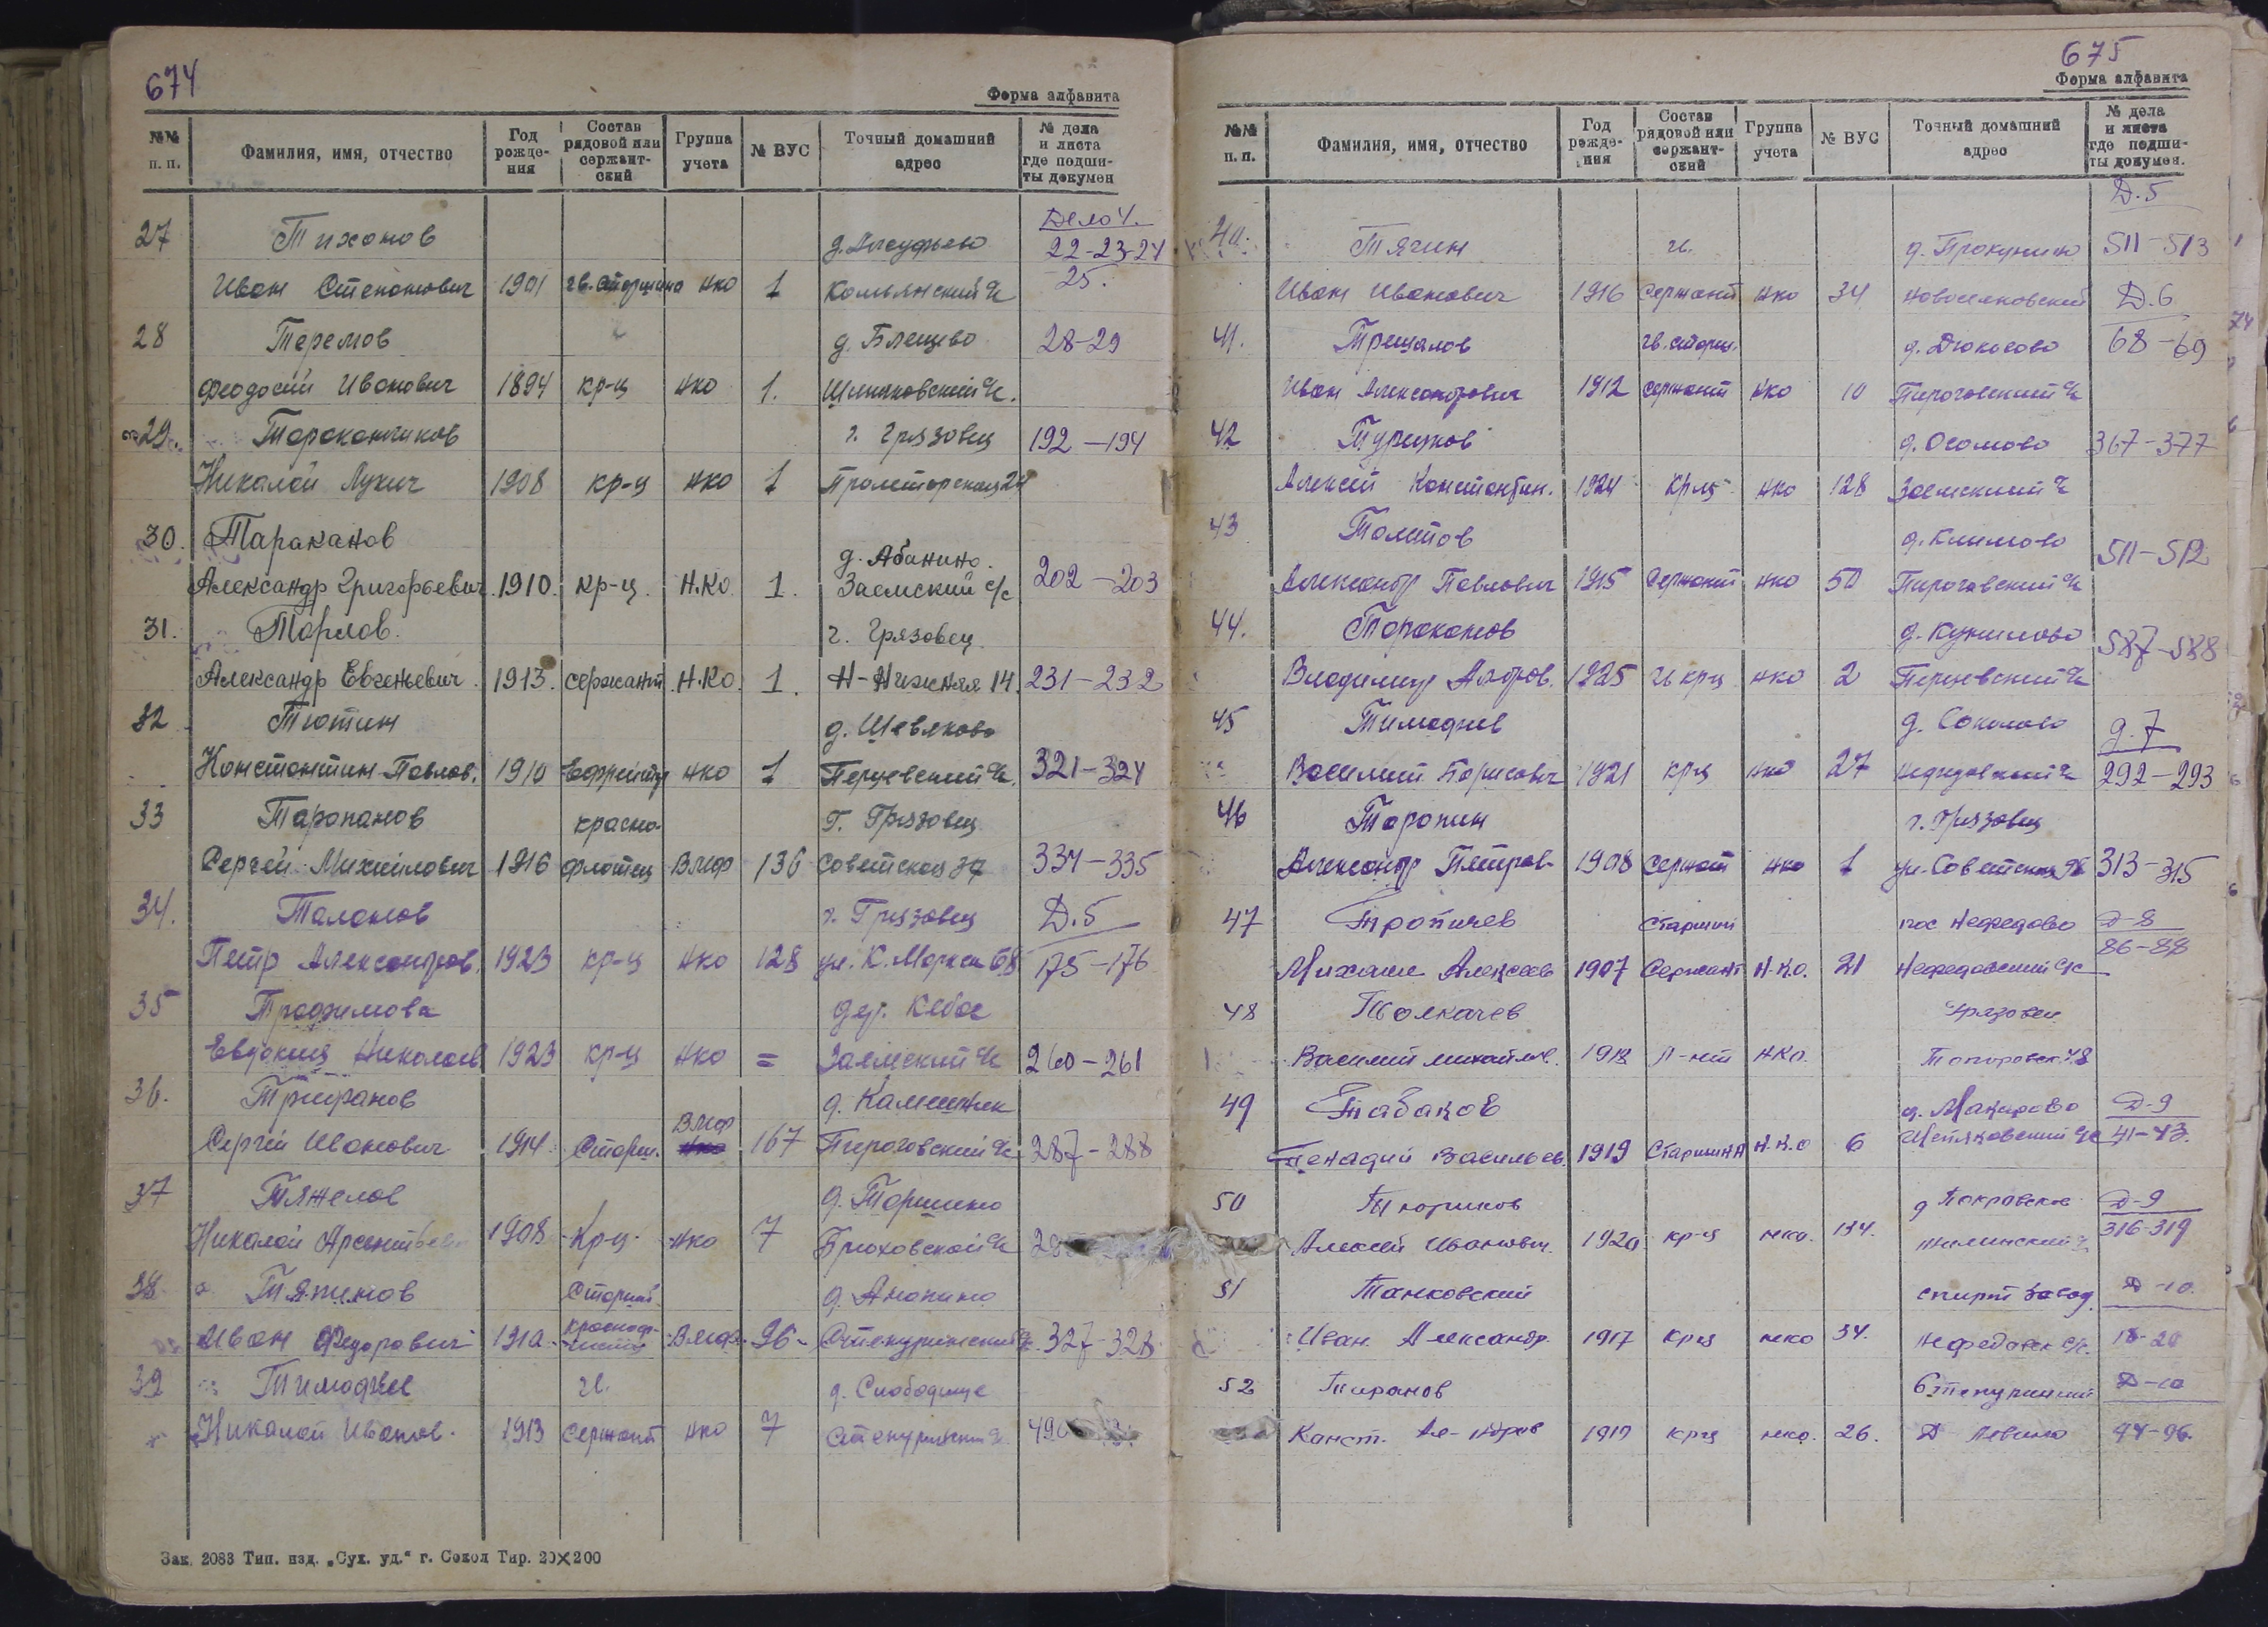 674
Форма алфавита
№№ п. п. Фамилия, имя, отчество Год рожде-ния Состав рядовой или сержант-ский Группа учета № ВУС Точный домашний адрес № дела и листа где подши-ты докумен
27 Тихонов Дело 4.
22-23-24
Иван Степанович 1901 гв. старшина нко 1 Комьянский с/с 25.
28 Теремов д. Блещево 28-29
Феодосий Иванович 1894 кр-ц нко 1.
29. Тараканчиков г. Грязовец 192-194
Николай Лукич 1908 кр-ц нко 1 Пролетарская
30. Тараканов д. Абанино.
Александр Григорьевич 1910. кр-ц. Н.Ко. 1. Заемский с/с 202-203
31. Торлов. г. Грязовец.
Александр Евгеньевич 1913. сержант Н.Ко. 1. Н-Нижняя 14. 231-232
32 Тютин д. Шевяково
Константин Павлов. 1910 Ефрейтор нко 1 Перцевский с/с. 321-324
33 Таропанов красно- г. Грязовец
Сергей Михайлович 1916 флотец Вмф 136 Советская 334-335
34. Таланов г. Грязовец Д.5
Петр Александров. 1923 кр-ц нко 128 ул. К. Маркса 68 175-176
35 Трофимова дер. Кебас
Евдокия Николаев 1923 кр-ц нко = Заемский с/с 260-261
36. Трифанов д. Каменник
Сергей Иванович 1914 Старш. Вмф нко 167 Пироговский с/с 287-288
37 Тяжелов
Николай Арсентьев 1908 Кр-ц. нко 7
38. Тяпинов Старший д. Анопино
Иван Федорович Вмф. 96 327-328
39 Тимофеев гв. д. Слободище
Николай Иванов. 1913 Сержант нко 7
Зак. 2083 Тип. изд. „Сух. уд.“ г. Сокол Тир. 20×200
675
Форма алфавита
№№ п. п. Фамилия, имя, отчество Год рожде-ния Состав рядовой или сержант-ский Группа учета № ВУС Точный домашний адрес № дела и листа где подши-ты докумен.
Д.5
40. Тягин гв. 511-513
Иван Иванович 1916 Сержант нко 34 Новоселковский Д.6
41. Трещалов гв. старш. д. Дюкосово 68-69
Иван Александрович 1912 сержант нко 10 Пироговский с/с
42 д. Осомово 367-377
Алексей Константин. 1924 кр-ц нко 128 Заемский с/с
43 д. Климово 511-512
Александр Павлович 1915 Сержант нко 50 Пироговский с/с
44. Тараканов 587-588
Владимир 1925 гв кр-ц нко 2 Перцевский с/с
45 Тимофеев д. Соколово д. 7
Василий Борисович 1921 кр-ц нко 27 292-293
46 Торопин г. Грязовец
Александр Петров. 1908 Сержант нко 1 ул. Советская 313-315
47 Тропичев Старший пос Нефедово Д-8
86-88
Михаил Алексеев 1907 Сержант Н.К.О. 21 Нефедовский с/с
48 Толкачев Грязовец
Василий Михайлов. л-нт НКО.
49 Табаков д. Макарово Д-9
Генадий Васильев. 1919 Старшина Н.К.О 6 41-43.
50 Тюриков д Покровское Д-9
Алексей Иванович. кр-ц нко. 134. 316-319
51 Танковский спирт завод. Д-10.
Иван Александр. 1917 кр-ц нко 34. Нефедовск с/с. 18-20
52 Тиранов Д-10
Конст. Ал-ндров 1919 кр-ц нко. 26. Д Левино 94-96.